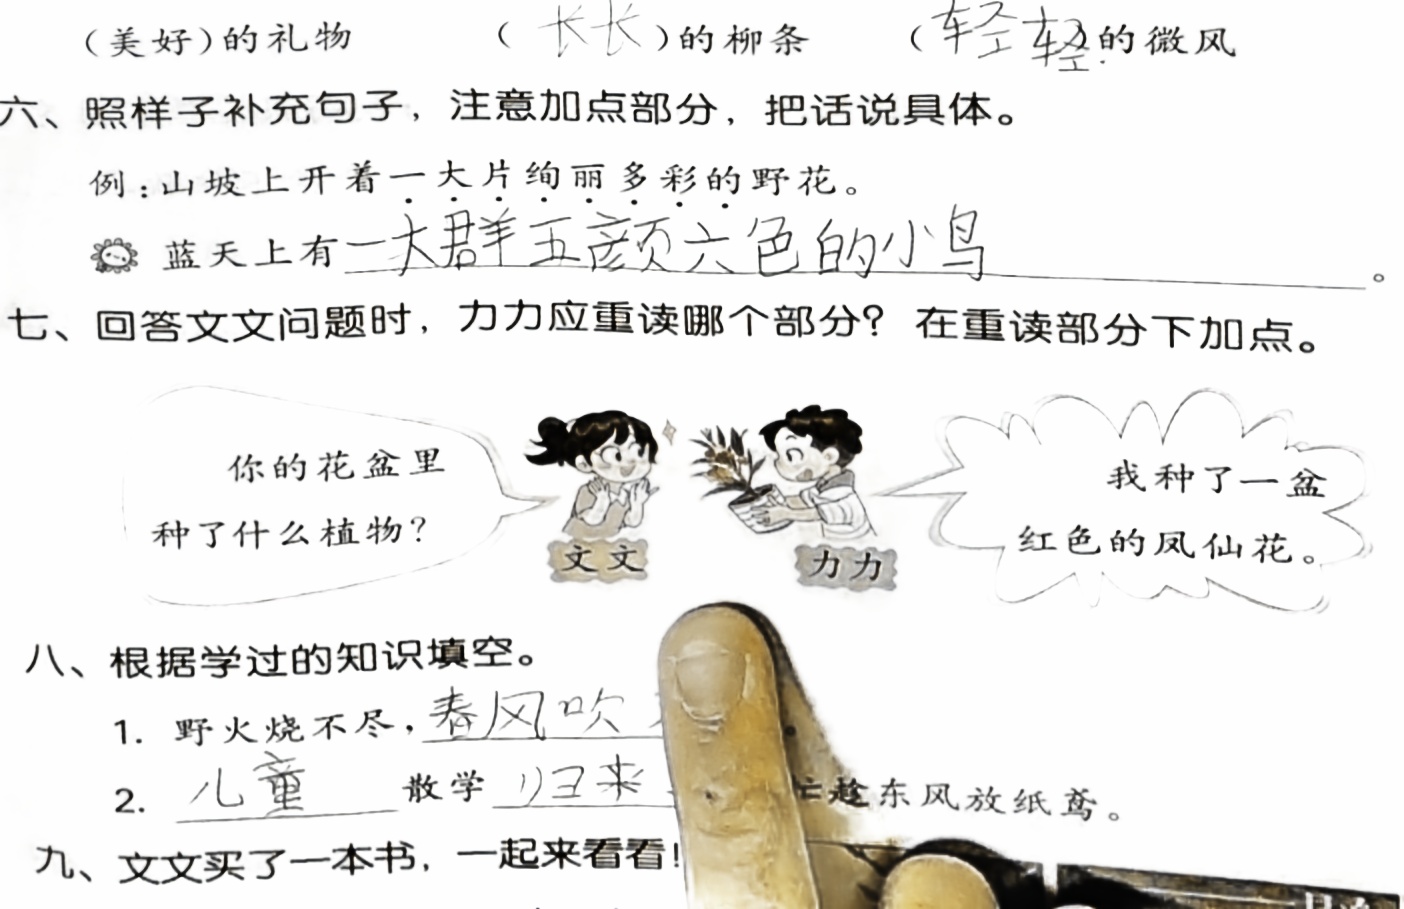 (美好)的礼物 (长长)的柳条 (轻轻)的微风
六、照样子补充句子，注意加点部分，把话说具体。
例：山坡上开着一大片绚丽多彩的野花。
蓝天上有一大群五颜六色的小鸟。
七、回答文文问题时，力力应重读哪个部分？在重读部分下加点。
你的花盆里
种了什么植物？
文文
力力
我种了一盆
红色的凤仙花。
八、根据学过的知识填空。
1. 野火烧不尽，春风吹
2. 儿童散学归来 忙趁东风放纸鸢。
九、文文买了一本书，一起来看看！